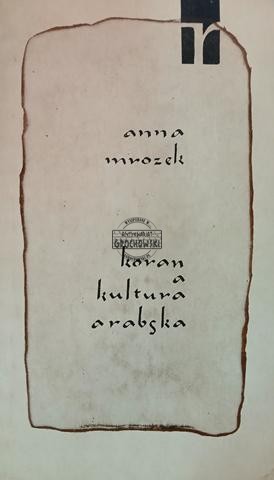 r
anna
mrozek
GROCHOWSKI
koran
a
kultura
arabska